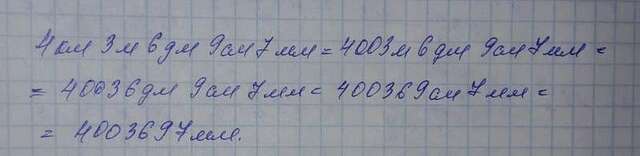 4км 3м 6дм 9см 7мм = 4003м 6дм 9см 7мм =
= 40036дм 9см 7мм = 400369см 7мм =
= 4003697мм.